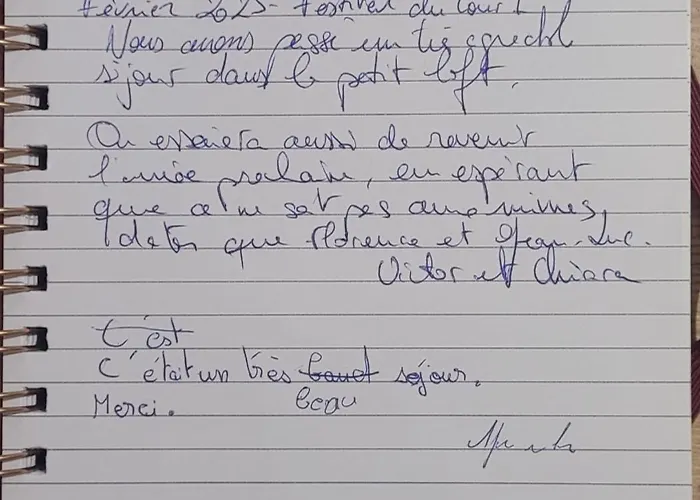 Février 2025 - Festival du Court
Nous avons passé un très agréable
séjour dans le petit loft.
On essaiera aussi de revenir
l'année prochaine, en espérant
que ce ne soit pas aux mêmes
dates que Florence et Jean-Luc.
Victor et Chiara
C'est
C'était un très séjour.
Merci. beau